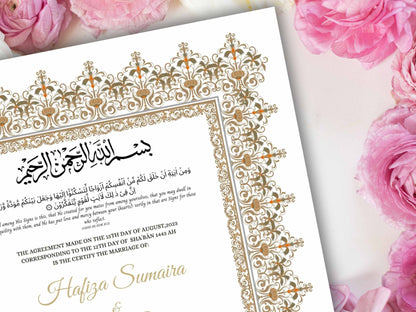 بسم الله الرحمن الرحيم
وَمِنْ آيَاتِهِ أَنْ خَلَقَ لَكُم مِّنْ أَنفُسِكُمْ أَزْوَاجًا لِّتَسْكُنُوا إِلَيْهَا وَجَعَلَ بَيْنَكُم مَّوَدَّةً
إِنَّ فِي ذَٰلِكَ لَآيَاتٍ لِّقَوْمٍ يَتَفَكَّرُونَ
among His Signs is this, that He created for you mates from among yourselves, that you may dwell in
with them, and He has put love and mercy between your (hearts): verily in that are Signs for those
who reflect.
THE AGREEMENT MADE ON THE 15TH DAY OF AUGUST,2022
CORRESPONDING TO THE 12TH DAY OF SHA'BĀN 1443 AH
IS THE CERTIFY THE MARRIAGE OF:
Hafiza Sumaira
&